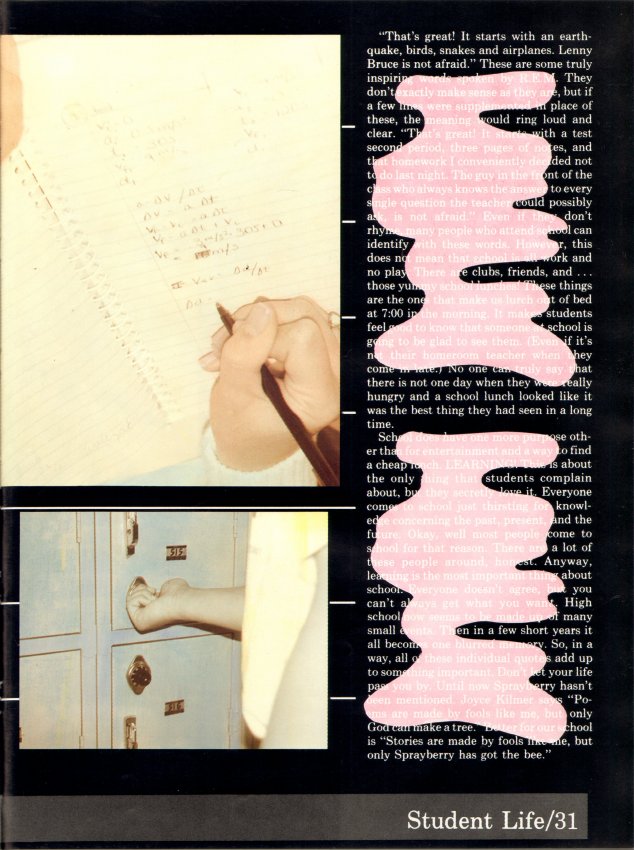 a = ΔV/Δt
515
516
"That's great! It starts with an earth-
quake, birds, snakes and airplanes. Lenny
Bruce is not afraid." These are some truly
inspiring words spoken by R.E.M. They
don't exactly make sense as they are, but if
a few lines were supplemented in place of
these, the meaning would ring loud and
clear. "That's great! It starts with a test
second period, three pages of notes, and
that homework I conveniently decided not
to do last night. The guy in the front of the
class who always knows the answer to every
single question the teacher could possibly
ask, is not afraid." Even if they don't
rhyme many people who attend school can
identify with these words. However, this
does not mean that school is all work and
no play. There are clubs, friends, and ...
those yummy school lunches! These things
are the ones that make us lurch out of bed
at 7:00 in the morning. It makes students
feel good to know that someone at school is
going to be glad to see them. (Even if it's
not their homeroom teacher when they
come in late.) No one can truly say that
there is not one day when they were really
hungry and a school lunch looked like it
was the best thing they had seen in a long
time.
School does have one more purpose oth-
er than for entertainment and a way to find
a cheap lunch. LEARNING! This is about
the only thing that students complain
about, but they secretly love it. Everyone
comes to school just thirsting for knowl-
edge concerning the past, present, and the
future. Okay, well most people come to
school for that reason. There are a lot of
these people around, honest. Anyway,
learning is the most important thing about
school. Everyone doesn't agree, but you
can't always get what you want. High
school now seems to be made up of many
small events. Then in a few short years it
all becomes one blurred memory. So, in a
way, all of these individual quotes add up
to something important. Don't let your life
pass you by. Until now Sprayberry hasn't
been mentioned. Joyce Kilmer says "Po-
ems are made by fools like me, but only
God can make a tree." Better for our school
is "Stories are made by fools like me, but
only Sprayberry has got the bee."
Student Life/31